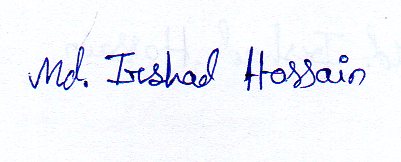 Md. Irshad Hossain